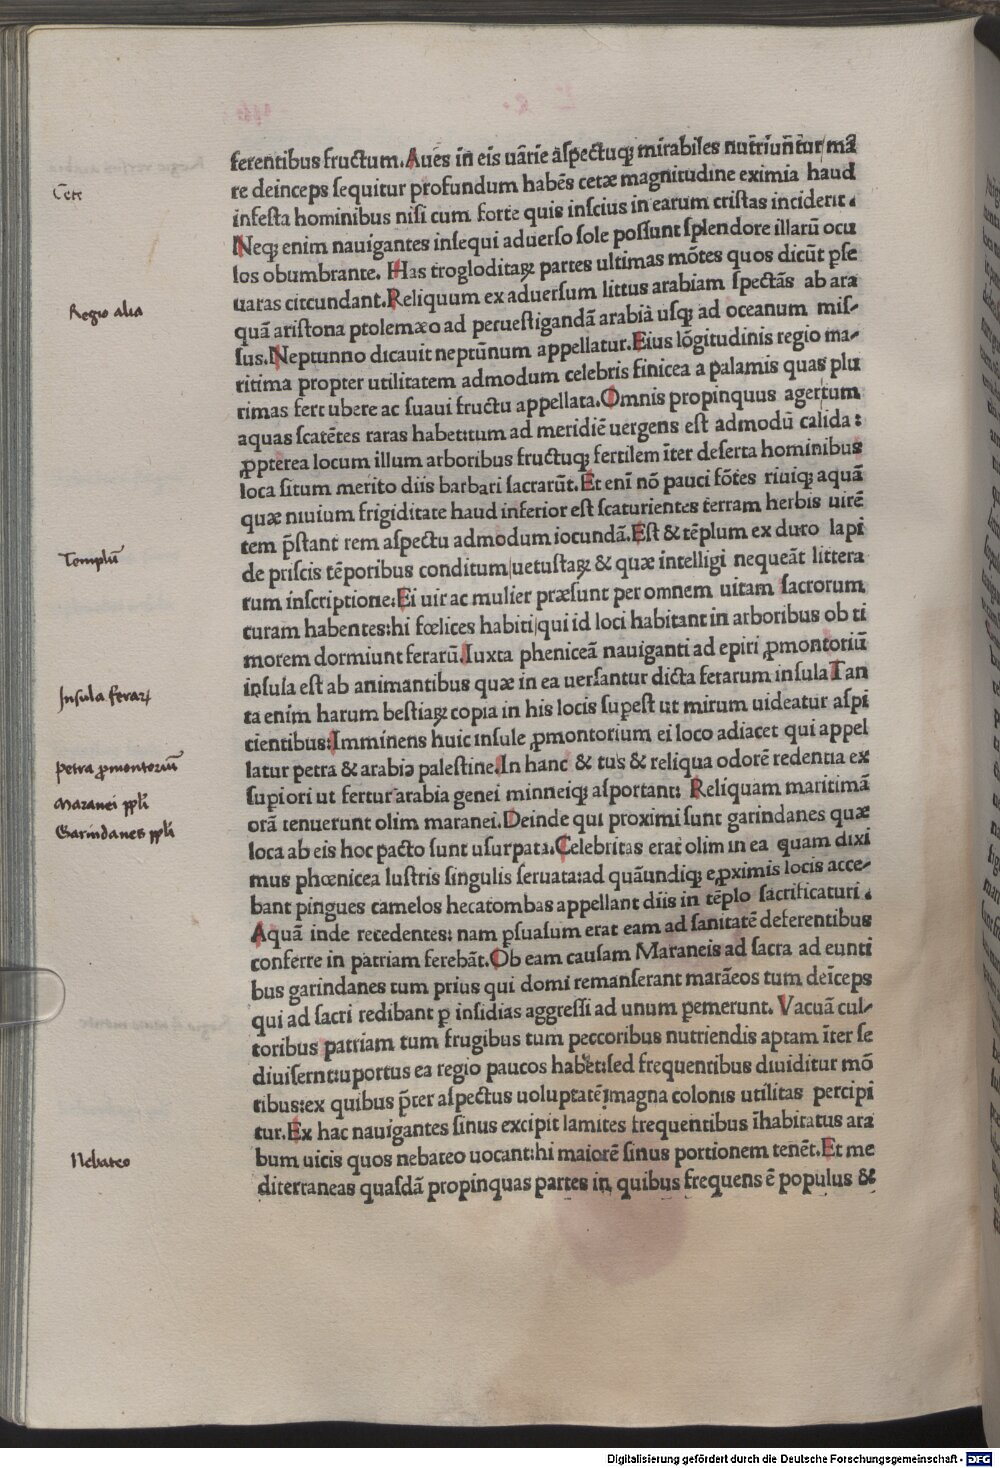 ferentibus fructum. Aues in eis uarie aspectuq; mirabiles nutriuntur/ ma
Cete
re deinceps sequitur profundum habēs cetæ magnitudine eximia haud
infesta hominibus nisi cum forte quis inscius in earum cristas inciderit.
Neq; enim nauigantes insequi aduerso sole possunt splendore illarū ocu
los obumbrante. Has trogloditaꝝ partes ultimas mōtes quos dicūt pse
Regio alia
uaras circundant. Reliquum ex aduersum littus arabiam spectās ab ara
quā aristona ptolemæo ad peruestigandā arabiā usq; ad oceanum mis-
sus. Neptunno dicauit neptūnum appellatur. Eius lōgitudinis regio ma-
ritima propter utilitatem admodum celebris finicea a palamis quas plu
rimas fert ubere ac suaui fructu appellata. Omnis propinquus ager tum
aquas scatētes raras habet: tum ad meridiē uergens est admodū calida:
ꝓpterea locum illum arboribus fructuq; fertilem īter deserta hominibus
loca situm merito diis barbari sacrarūt. Et enī nō pauci fōtes riuiq; aquā
quæ niuium frigiditate haud inferior est scaturientes terram herbis uirē
Templū
tem p̄stant rem aspectu admodum iocundā. Est & tēplum ex duro lapi
de priscis tēporibus conditum/uetustaꝝ & quæ intelligi nequeāt littera
rum inscriptione: Ei uir ac mulier præsunt per omnem uitam sacrorum
curam habentes: hi fœlices habiti/qui id loci habitant in arboribus ob ti
morem dormiunt ferarū. Iuxta pheniceā nauiganti ad epiri ꝓmontoriū
Insula ferarꝝ
insula est ab animantibus quæ in ea uersantur dicta ferarum insula Tan
ta enim harum bestiaꝝ copia in his locis supest ut mirum uideatur aspi
cientibus: Imminens huic insule ꝓmontorium ei loco adiacet qui appel
petra ꝓmontoriū
latur petra & arabia palestine. In hanc & tus & reliqua odorē redentia ex
Maranei ppli
supiori ut fertur arabia genei minneiq; asportant: Reliquam maritimā
Garindanes ppli
orā tenuerunt olim maranei. Deinde qui proximi sunt garindanes quæ
loca ab eis hoc pacto sunt usurpata. Celebritas erat olim in ea quam dixi
mus phœnicea lustris singulis seruata: ad quā undiq; e ꝓximis locis acce-
bant pingues camelos hecatombas appellant diis in tēplo sacrificaturi.
Aquā inde recedentes: nam psuasum erat eam ad sanitatē deferentibus
conferre in patriam ferebāt. Ob eam causam Maraneis ad sacra ad eunti
bus garindanes tum prius qui domi remanserant marāeos tum deīceps
qui ad sacri redibant p insidias aggressi ad unum pemerunt. Vacuā cul-
toribus patriam tum frugibus tum peccoribus nutriendis aptam īter se
diuisernt: portus ea regio paucos habēt: sed frequentibus diuiditur mō
tibus: ex quibus p̄ter aspectus uoluptatē: magna colonis utilitas percipi
tur. Ex hac nauigantes sinus excipit lamites frequentibus īhabitatus ara
Nebateo
bum uicis quos nebateo uocant: hi maiorē sinus portionem tenēt. Et me
diterraneas quasdā propinquas partes in quibus frequens ē populus &
Digitalisierung gefördert durch die Deutsche Forschungsgemeinschaft - DFG